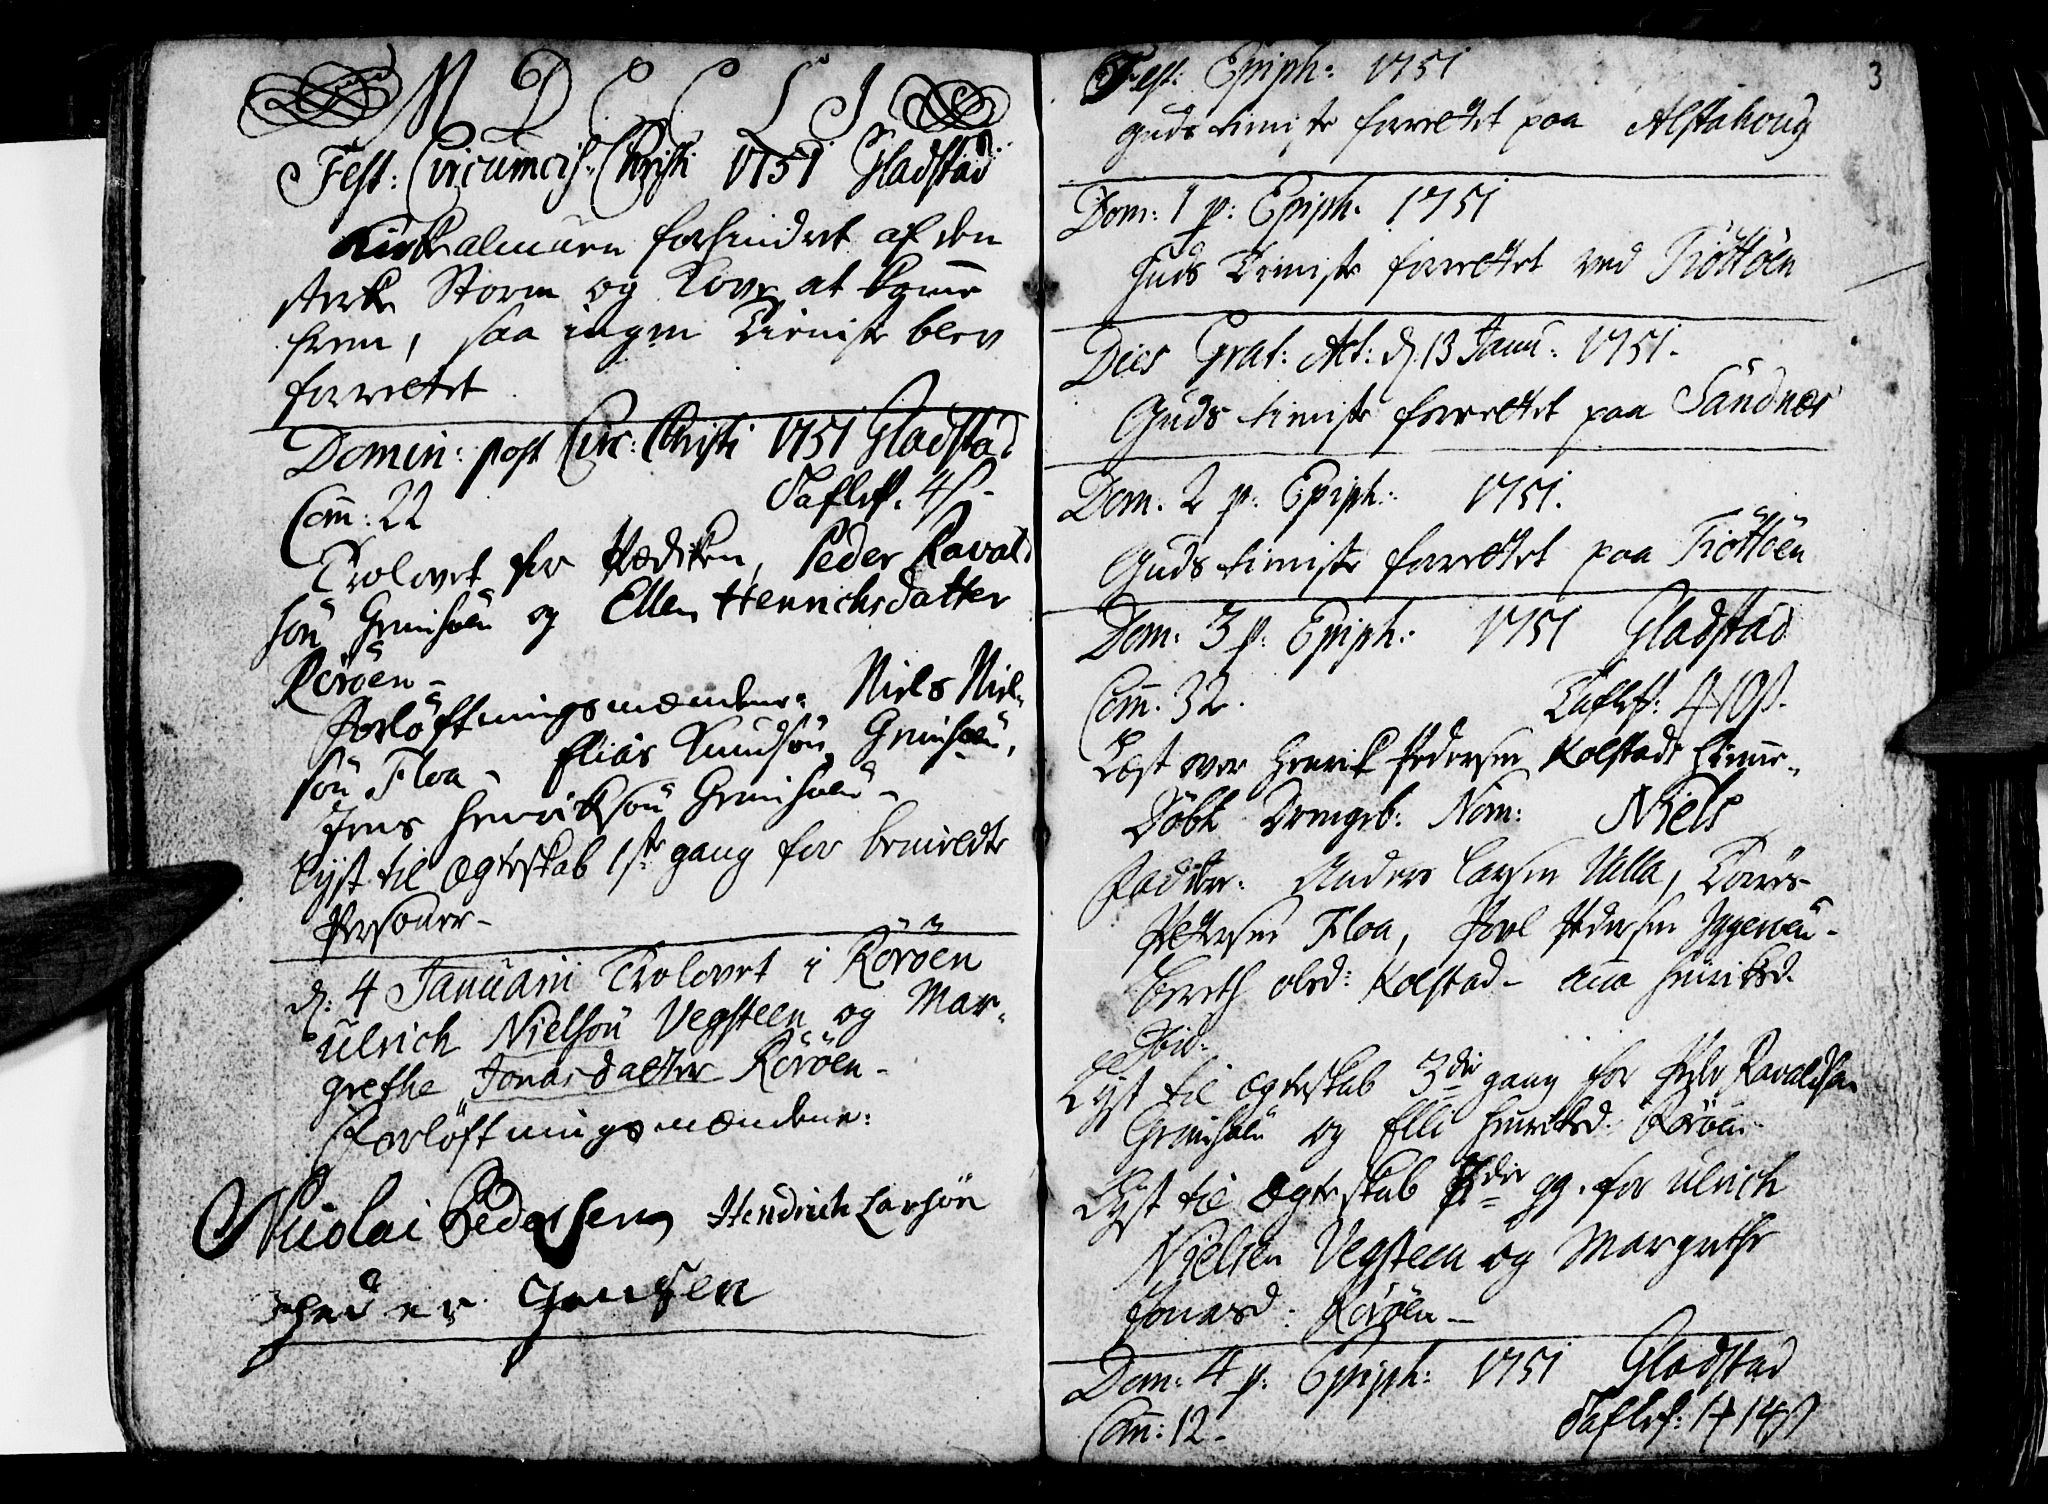 M D C C L I
Fest: Circumcis: Christi 1751 Gladstad
Kirke almuen forhindret af den
sterke Storm og Kove at komme
frem, saa ingen Tieniste blev
forrettet
Domin: post Circ: Christi 1751 Gladstad
Com: 22 Taflep. 4 ß -
Trolovet for Prædiken, Peder Ravald
søn Grimsøen og Ellen Henrichsdatter
Rørøen -
Forløftningsmændene: Niels Niel-
søn Floa - Elias Knudsøn Grimsøen,
Jens Henriksøn Grimsøen -
Lyst til Ægteskab 1ste gang for bemeldte
Personer -
d: 4 Januarii Trolovet i Rørøen
Ulrich Nielsøn Vegsteen og Mar-
grethe Jonasdatter Rørøen -
Forløftningsmændene:
Nicolai Pedersen Hendrich Larsøn
Peder Jensen
3
Fest: Epiph: 1751
Gudstieniste forrettet paa Alstahoug
Dom: 1 p: Epiph. 1751
Guds Tieniste forrettet ved Tiøttøen
Dies Grat: Act: d. 13 Janu: 1751.
Guds tieniste forrettet paa Sandnes
Dom. 2 p: Epiph: 1751.
Guds tieniste forrettet paa Tiøttøen
Dom: 3 p: Epiph: 1751 Gladstad
Com. 32. Taflep: 4 10 ß.
Læst over Henrik Pedersen Kolstads
Døbt Drengeb: Nom: Niels
Faddere: Anders Larsen Ulla, Torris
Petersen Floa, Poel Pedersen
Bereth Olsd: Kolstad - Ana Henriksd.
Ibid:
Lyst til Ægteskab 3die gang for Peder Ravaldsøn
Grimsøen og Elli Henriksd. Rørøen.
Lyst til Ægteskab gg. for Ulrich
Nielsen Vegsteen og Margrethe
Jonasd: Rørøen -
Dom: 4 p: Epiph: 1751 Gladstad
Com: 12 - Taflep: 1 14 ß